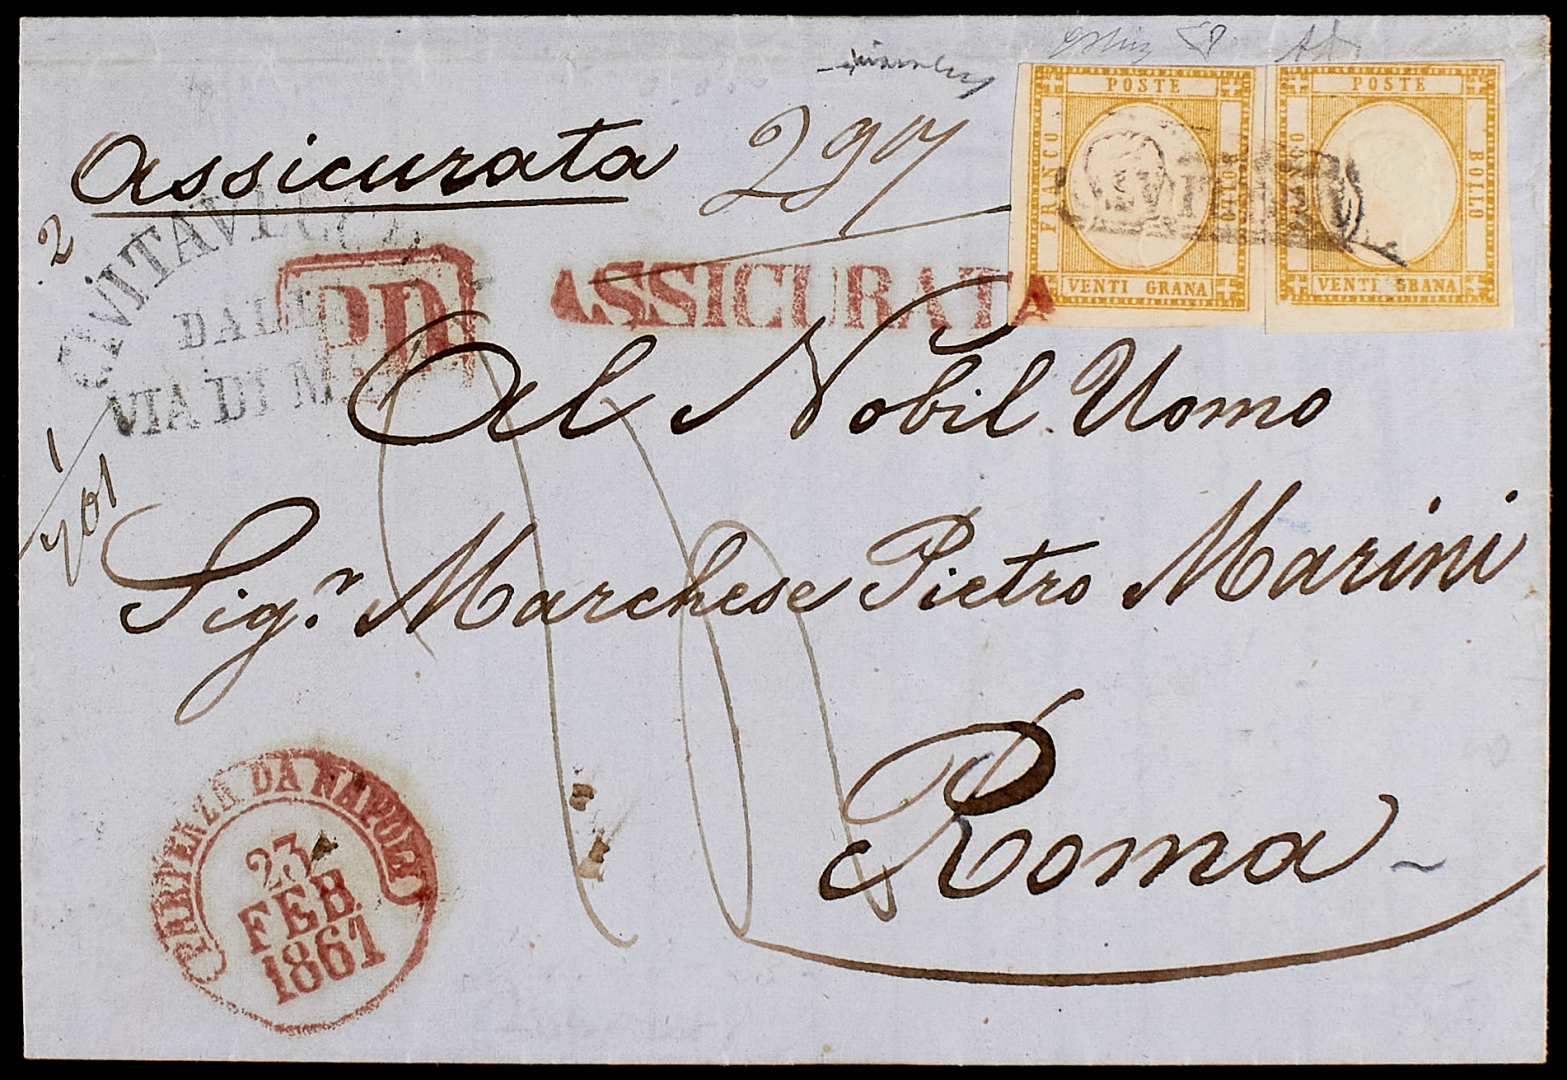 Assicurata
297
2
CIVITAVECCHIA
DALLA
VIA DI MARE
PD
ASSICURATA
POSTE
FRANCO
BOLLO
VENTI GRANA
POSTE
FRANCO
BOLLO
VENTI GRANA
ANNULLATO
Al Nobil Uomo
Sig.r Marchese Pietro Marini
Roma
1
701
PARTENZA DA NAPOLI
23
FEB.
1861